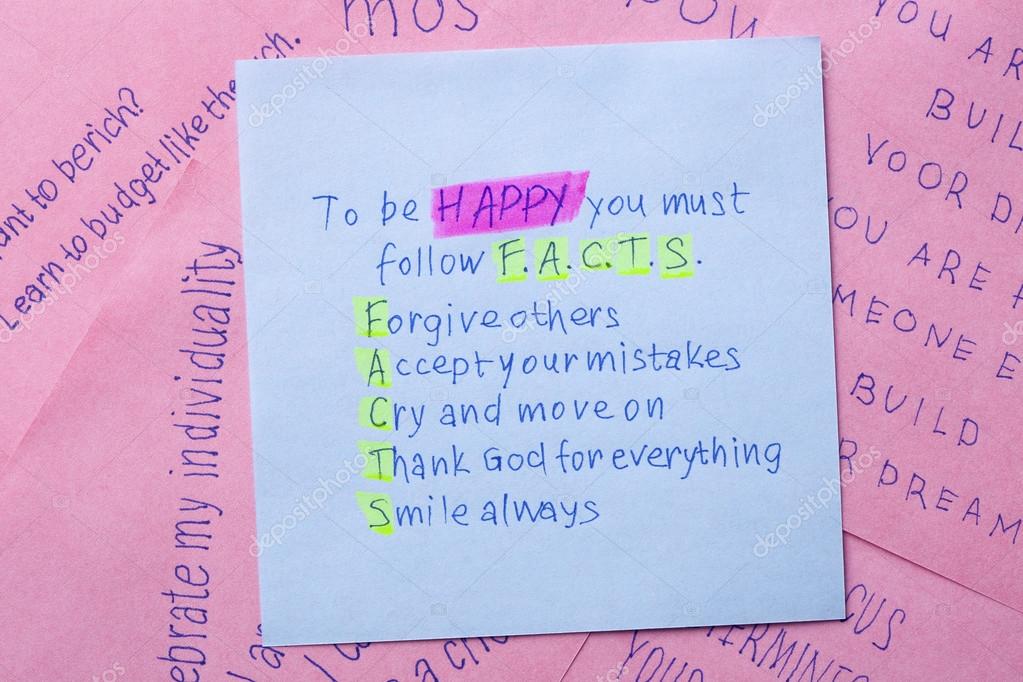 To be HAPPY you must
follow F.A.C.T.S.
Forgive others
Accept your mistakes
Cry and move on
Thank God for everything
Smile always
want to be rich?
Learn to budget like the rich.
my individuality
MOS
YOU AR
BUIL
YOOR D
YOU ARE
MEONE E
BUILD
R DREAM
CUS
TERMINE
YOUR
depositphotos